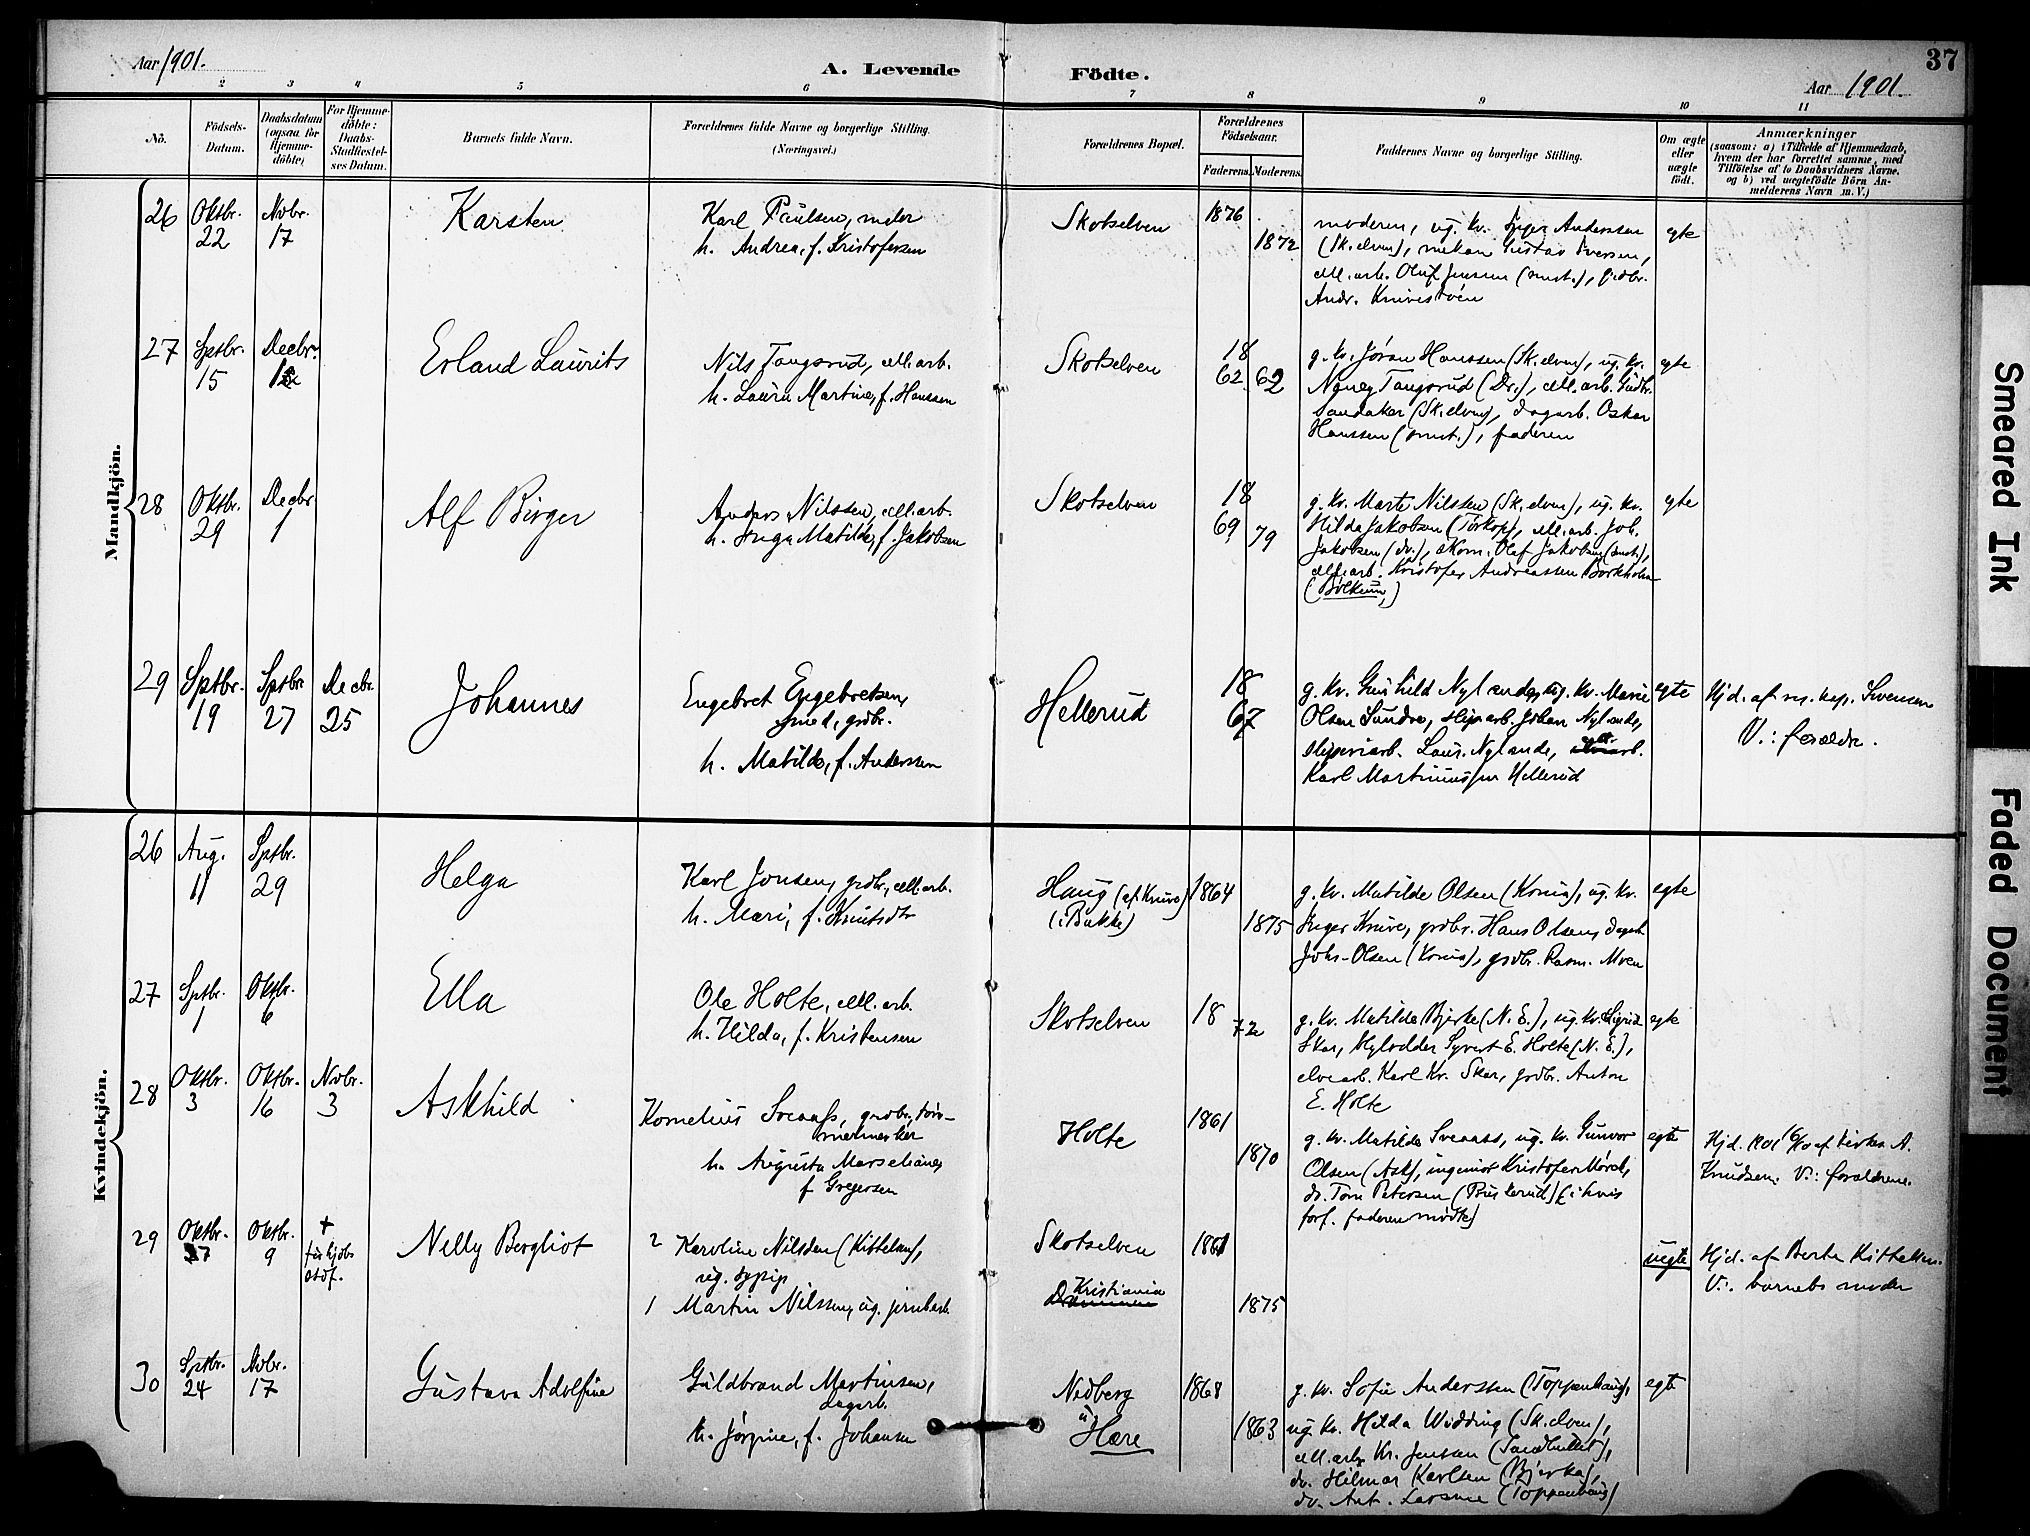 Aar 1901.
A. Levende Födte.
37
Aar 1901.
2 3 4 5 6 7 8 9 10 11
No.
Födsels-Datum.
Daabsdatum (ogsaa for Hjemme-döbte)
For Hjemme-döbte: Daabs-Stadfæstel-ses Datum.
Barnets fulde Navn.
Forældrenes fulde Navne og borgerlige Stilling. (Næringsvei.)
Forældrenes Bopæl.
Forældrenes Födselsaar.
Faderens. Moderens.
Faddernes Navne og borgerlige Stilling.
Om ægte eller uægte födt.
Anmærkninger
(saasom: a) i Tilfælde af Hjemmedaab,
hvem der har forrettet samme, med
Tilföielse af to Daabsvidners Navne.
og b) ved uægtefödte Börn An-
melderens Navn m. V.)
Mandkjön.
26 Oktbr. 22 Nvbr. 17
Karsten
Karl Paulsen, maler
h. Andrea, f. Kristofersen
Skotselven
1876
1872
moderen, ug. kv. Inger Anderssen
(Sk.elven), mekan Gustav Iversen,
cell.arb. Oluf Jensen (smst.), grdbr.
Andr. Knivestøen
egte
27 Sptbr. 15 Decbr. 1
Erland Laurits
Nils Tangsrud, cell.arb.
h. Laura Martine, f. Hanssen
Skotselven
18
62 62
g. kv. Jøran Hanssen (Sk.elven), ug. kv.
Nancy Tangsrud (Dr.), cell.arb. Gudbr.
Sandaker (Sk.elven), dagarb. Oskar
Hanssen (smst.), faderen
egte
28 Oktbr. 29 Decbr 1
Alf Birger
Anders Nilssen, cell.arb.
h. Inga Matilde, f. Jakobsen
Skotselven
18
69 79
g. kv. Marte Nilssen (Sk.elven), ug. kv.
Hilda Jakobsen (Torkop), cell.arb. Joh.
Jakobsen (do.), skom. Olaf Jakobsen (smst.),
cell.arb. Kristofer Andreassen Borkholm
egte
29 Sptbr. 19 Sptbr 27 Decbr. 25
Johannes
Engebret Engebretsen,
smed, grdbr.
h. Matilde, f. Anderssen
Hellerud
18
67
g. kv. Gunhild Nylande, ug. kv. Marie
Olsen Sundre, slip.arb. Johan Nylande,
sliperiarb. Laur. Nylande, arb.
Karl Martinussen Hellerud
egte
Hjd. af res. kap. Svensen
V.: forældr.
Kvindekjön.
26 Aug. 11 Sptbr. 29
Helga
Karl Jonsen, grdbr., cell.arb.
h. Mari, f. Knutsdtr
Haug (af Knive)
(i Bakke)
1864
1875
g. kv. Matilde Olsen (Korus), ug. kv.
Inger Knive, grdbr. Hans Olsen, dagarb.
Johs. Olsen (Korus), grdbr. Rasm. Moen
egte
27 Sptbr. 1 Oktbr. 6
Ella
Ole Holte, cell.arb.
h. Hilda, f. Kristensen
Skotselven
18
72
g. kv. Matilda Bjerke (N. E.), ug. kv. Sigrid
Skar, Syvert E. Holte (N. E.),
elvearb. Karl Kr. Skar, grdbr. Anton
E. Holte
egte
28 Oktbr. 3 Oktbr. 16 Nvbr. 3
Askhild
Kornelius Sveaass, grdbr., tøm-
mermerker
h. Augusta Marseliane,
f Gregersen
Holte
1861
1870
g. kv. Matilda Sveaass, ug. kv. Gunvor
Olsen (Ask), ingeniør Kristofer Mørch,
do. Tom Petersen (Buskerud) (i hvis
forf. faderen mødte)
egte
Hjd. 1901 16/10 af kirkes. A.
Knudsen. V.: forældrene.
29 Oktbr. 7 Oktbr. 9 +
Nelly Bergliot
2 Karoline Nilsden (Kittelsen),
ug. sypige
1 Martin Nilssen, ug. jernbarb.
Skotselven
Kristiania
Drammen
1881
1875
uegte
Hjd. af Berte Kittelsen.
V.: barnets moder
30 Sptbr. 24 Nvbr. 17
Gustava Adolfine
Guldbrand Martinsen,
dagarb.
h. Jørgine, f. Johansen
Nedberg
u
Hære
1868
1863
g. kv. Sofie Anderssen (Toppenhaug),
ug. kv. Hilda Widding (Sk.elven),
cell.arb. Kr. Jensen (Sandhullet),
do. Hilmar Karlsen (Bjerka),
do. Ant. Larsen (Toppenhaug)
egte
Smeared Ink
Faded Document